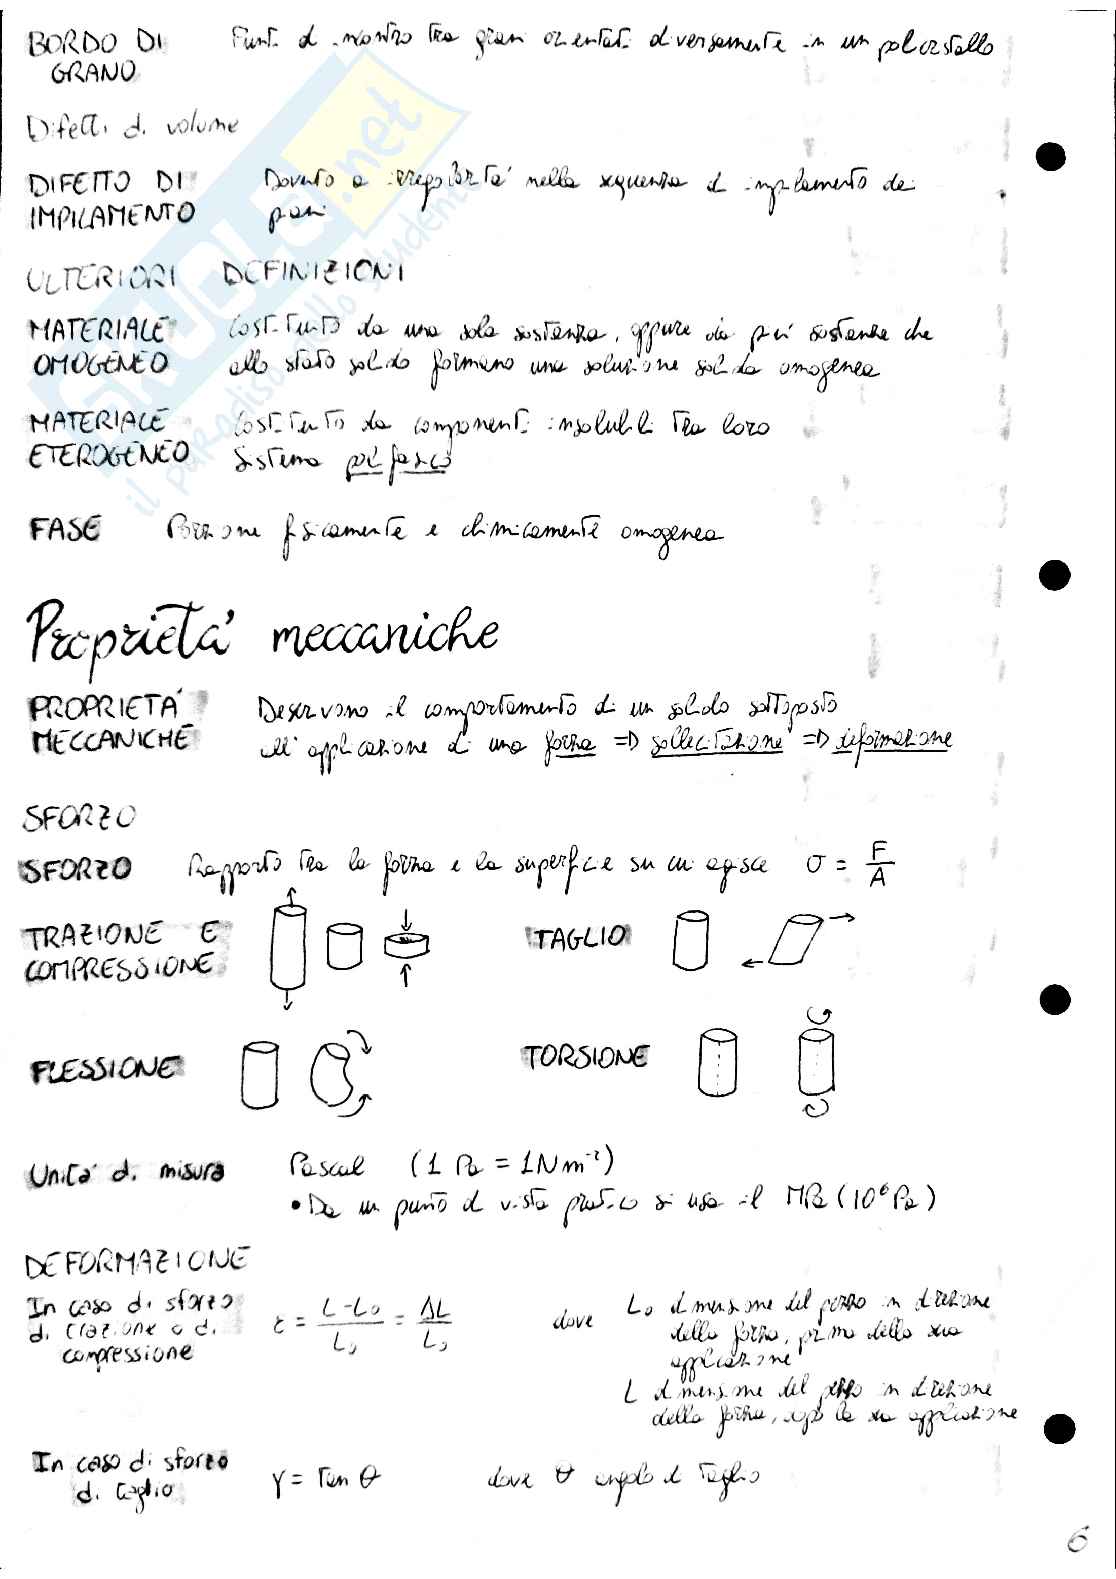 BORDO DI GRANO Punti di incontro tra grani orientati diversamente in un policristallo
Difetti di volume
DIFETTO DI IMPILAMENTO Dovuto a irregolarità nella sequenza di impilamento dei
piani
ULTERIORI DEFINIZIONI
MATERIALE OMOGENEO Costituito da una sola sostanza, oppure da più sostanze che
allo stato solido formano una soluzione solida omogenea
MATERIALE ETEROGENEO Costituito da componenti insolubili tra loro
Sistema polifasico
FASE Porzione fisicamente e chimicamente omogenea
Proprietà meccaniche
PROPRIETÀ MECCANICHE Descrivono il comportamento di un solido sottoposto
all'applicazione di una forza => sollecitazione => deformazione
SFORZO
SFORZO Rapporto tra la forza e la superficie su cui agisce σ = F/A
TRAZIONE E COMPRESSIONE
TAGLIO
FLESSIONE
TORSIONE
Unità di misura Pascal (1 Pa = 1 N m⁻²)
• Da un punto di vista pratico si usa il MPa (10⁶ Pa)
DEFORMAZIONE
In caso di sforzo di trazione o di compressione ε = L-L₀/L₀ = ΔL/L₀ dove L₀ dimensione del pezzo in direzione
della forza, prima della sua
applicazione
L dimensione del pezzo in direzione
della forza, dopo la sua applicazione
In caso di sforzo di taglio γ = tan θ dove θ angolo di taglio
6
SKUOLA.net
il paradiso dello studente